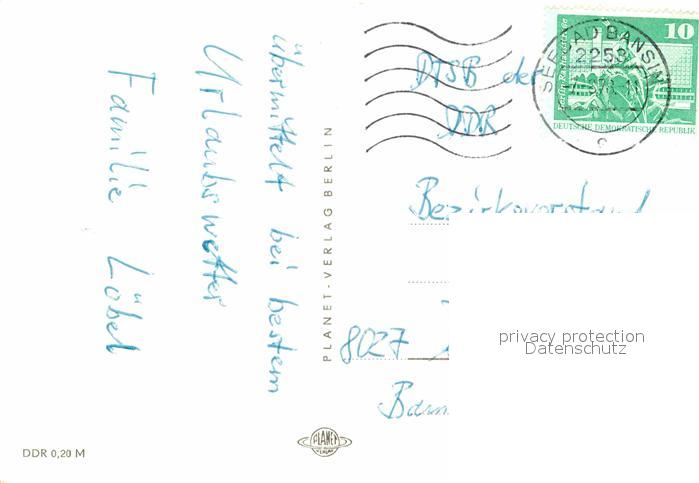 übermittelt bei bestem
Urlaubswetter
Familie Löbel
PLANET-VERLAG BERLIN
DTSB der
DDR
Bezirksvorstand
8027
10
DEUTSCHE DEMOKRATISCHE REPUBLIK
SEEBAD BANSIN
2253
c
privacy protection
Datenschutz
PLANET
VERLAG
DDR 0,20 M